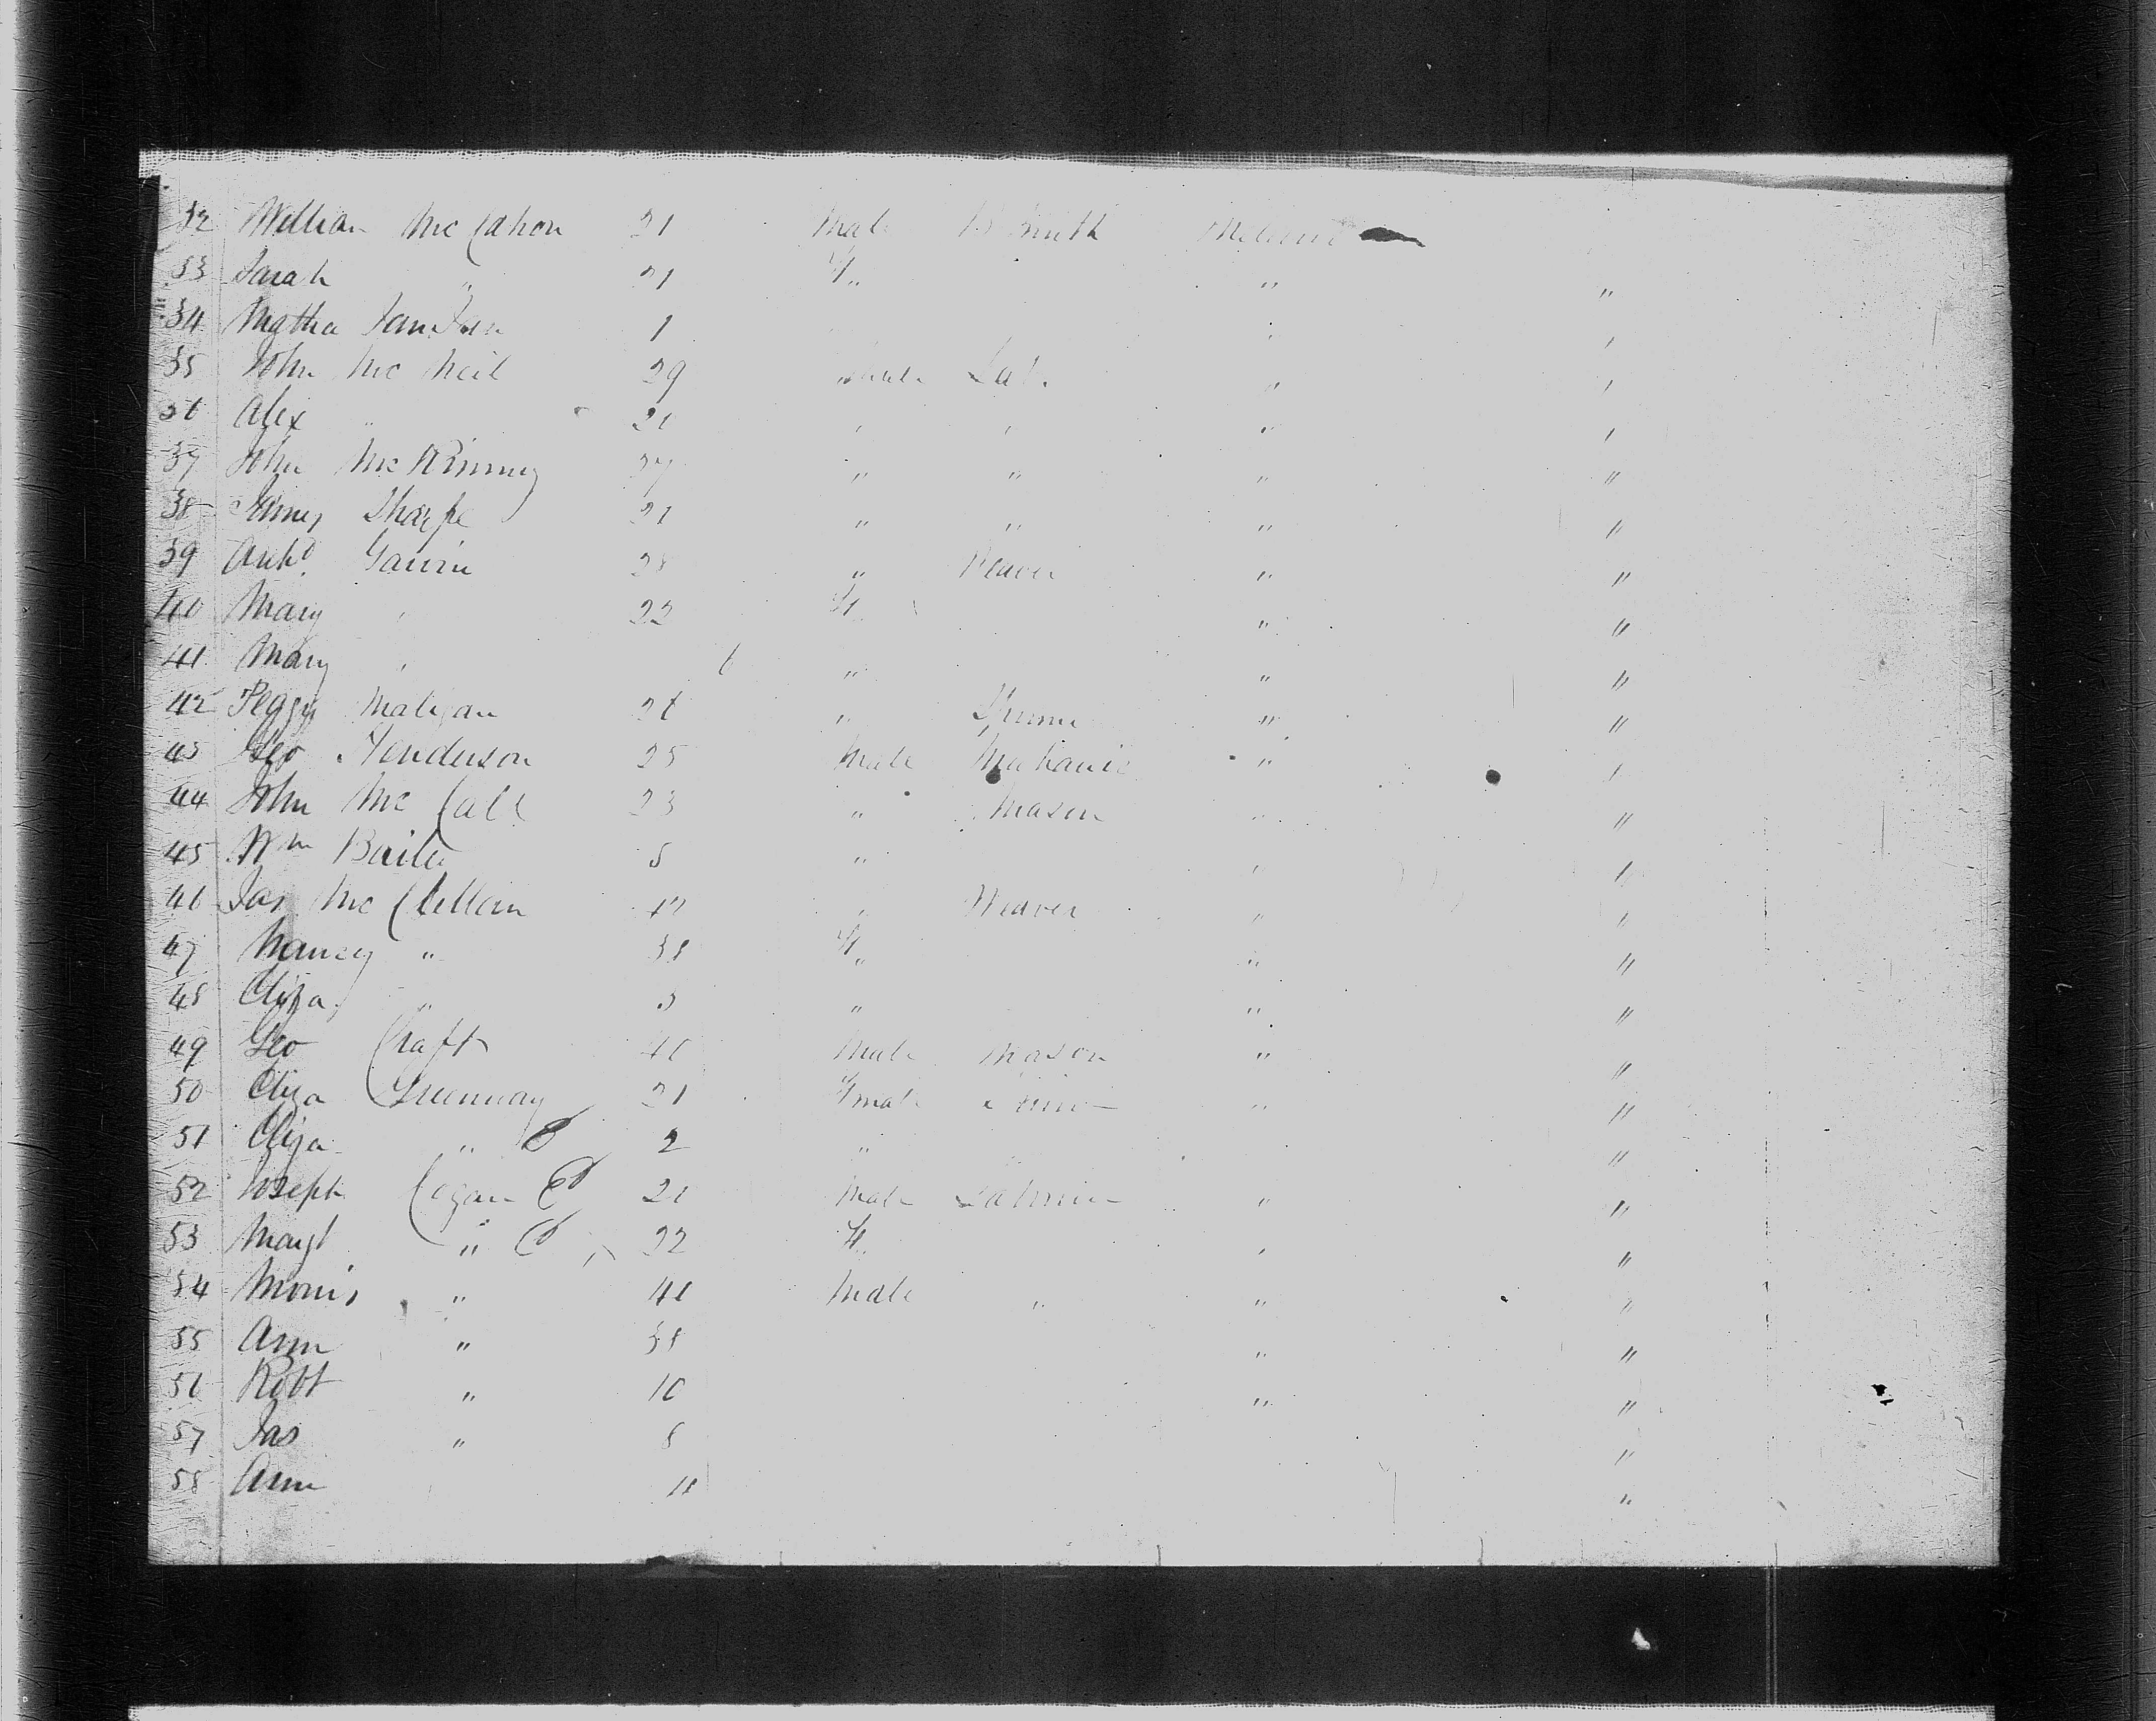 32 William Mc Cahon 21 Male B Smith
33 Sarah " 21 F " "
34 Martha 1 " "
35 John Mc Neil 29 Male Lab. " "
36 Alex " 20 " " " "
37 John Mc Kinney 27 " " " "
38 James Sharpe 21 " " " "
39 Archd Gavin 28 " Weaver " "
40 Mary " 22 F " "
41 Mary " 6 " " "
42 Peggy Maligan 26 " " "
43 Geo Henderson 25 Male Mechanic " "
44 John Mc Call 23 " Mason " "
45 Wm Bailey 5 " " "
46 Jas Mc Clellan 42 " Weaver " "
47 Nancy " 38 F " "
48 Eliza " 3 " " "
49 Geo Craft 40 Male Mason " "
50 Eliza Greenway 21 Fmale " "
51 Eliza " 2 " "
52 Joseph Cogan 20 Male " "
53 Margt " 22 F " "
54 Morris " 40 Male " " "
55 Ann " 38 " "
56 Robt " 10 " "
57 Jas " 8 "
58 Ann "